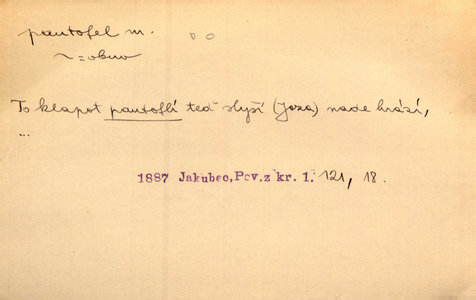 pantofel m. D O
~ = obuv
To klapot pantoflí teď slyší (Joza) nade hrází,
...
1887 Jakubec, Pov. z kr. 1. 121, 18.